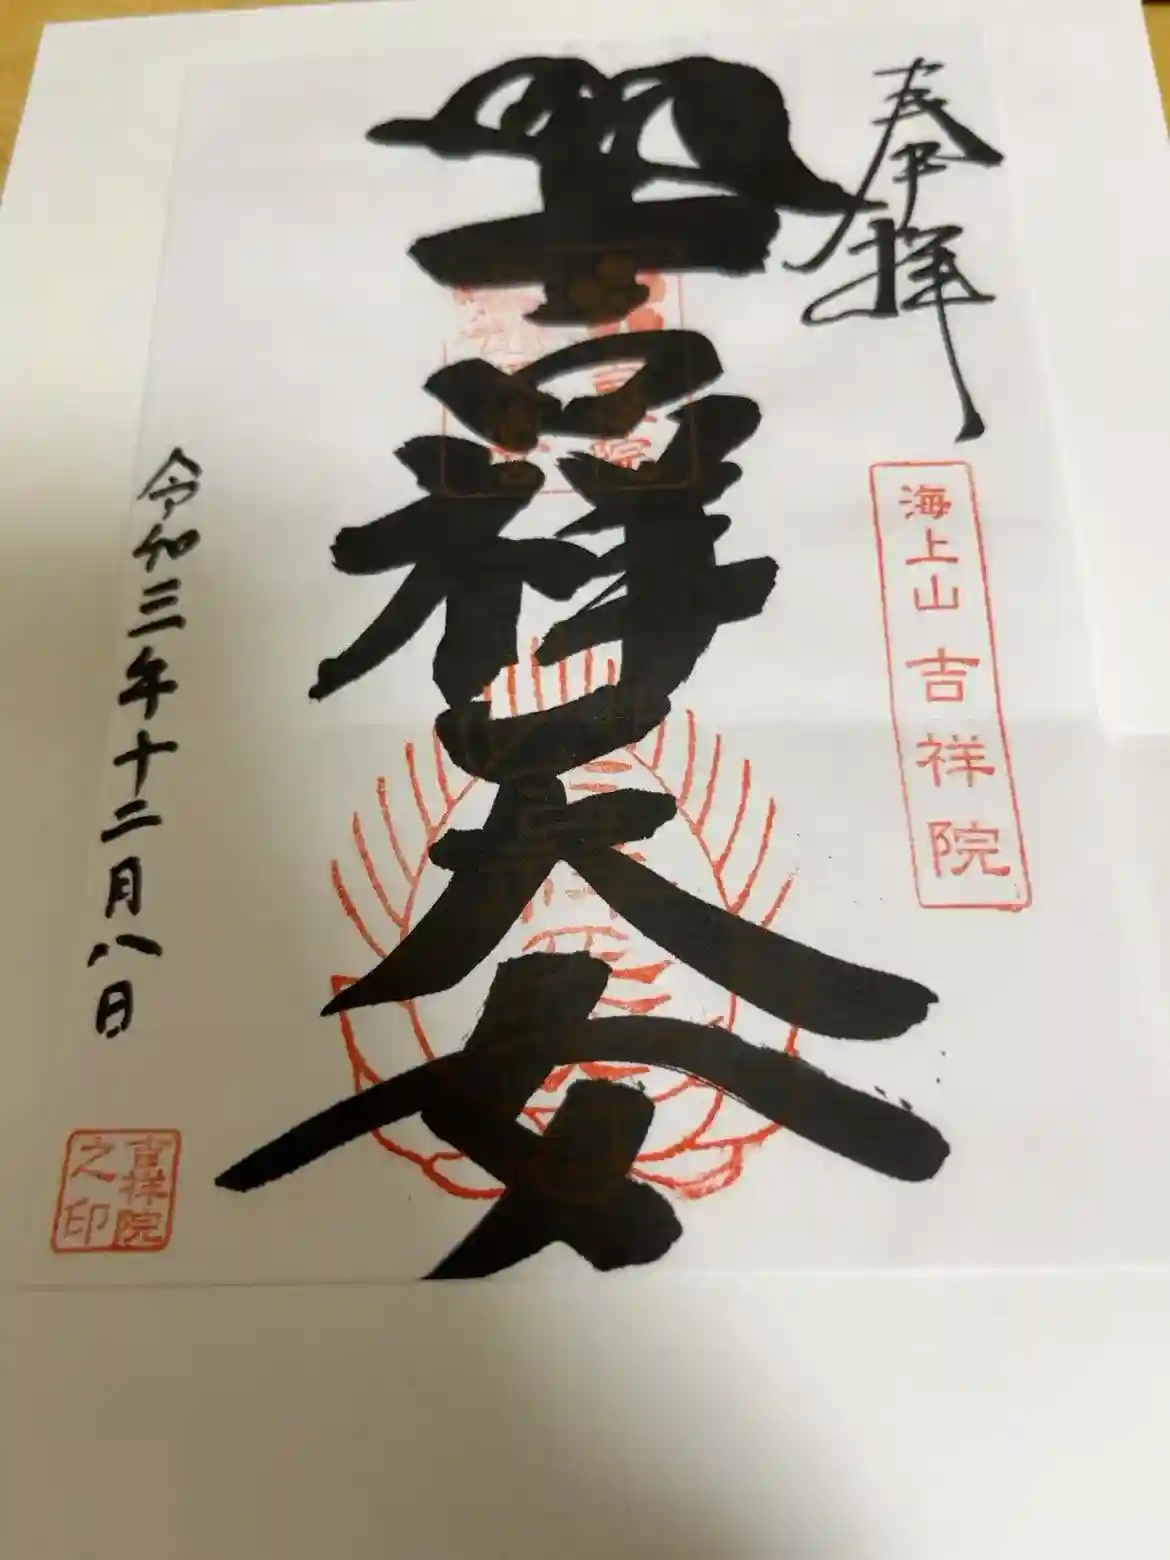 奉拝
海上山 吉祥院
吉祥天女
令和三年十二月八日
吉祥院
之印